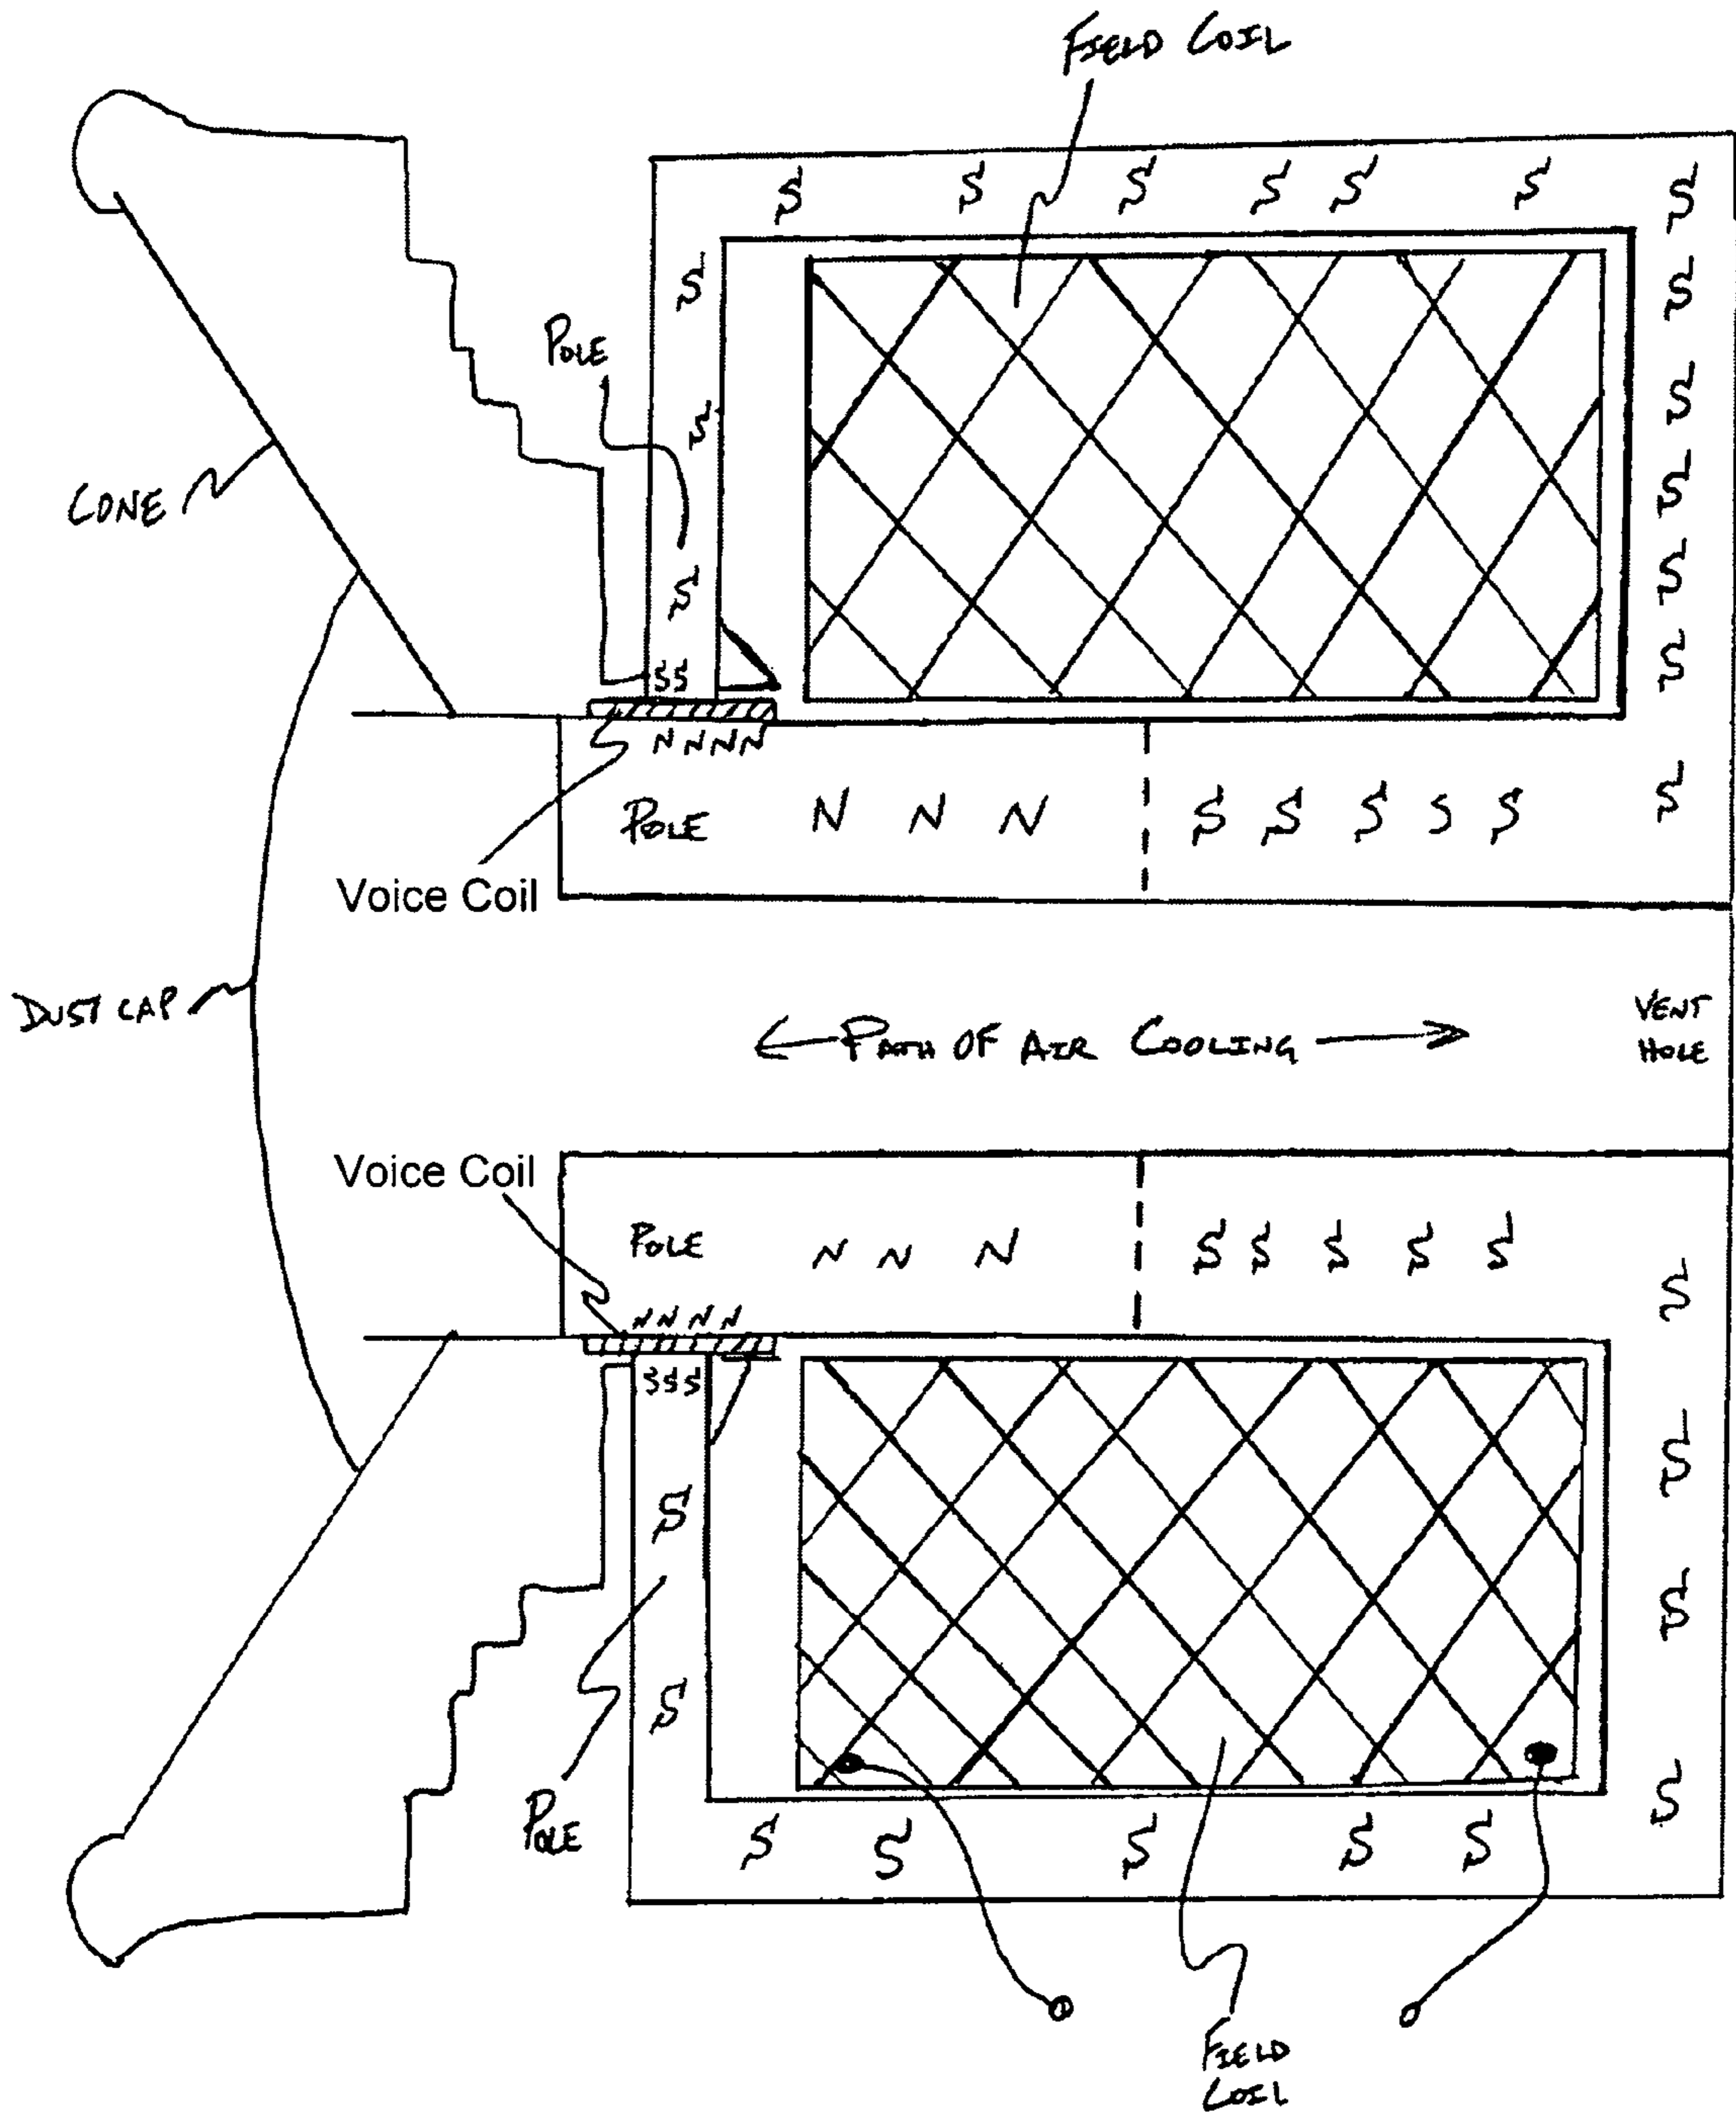 FIELD COIL
S S S S S S S
S S
POLE
S S
CONE
S
S S
S S
SS
S
N N N N
S
POLE N N N S S S S S
Voice Coil
DUST CAP
← PATH OF AIR COOLING →
VENT
HOLE
Voice Coil
POLE N N N S S S S S
S
N N N N
SSS
S
S
S
S
S
POLE
S S S S S
FIELD
COIL